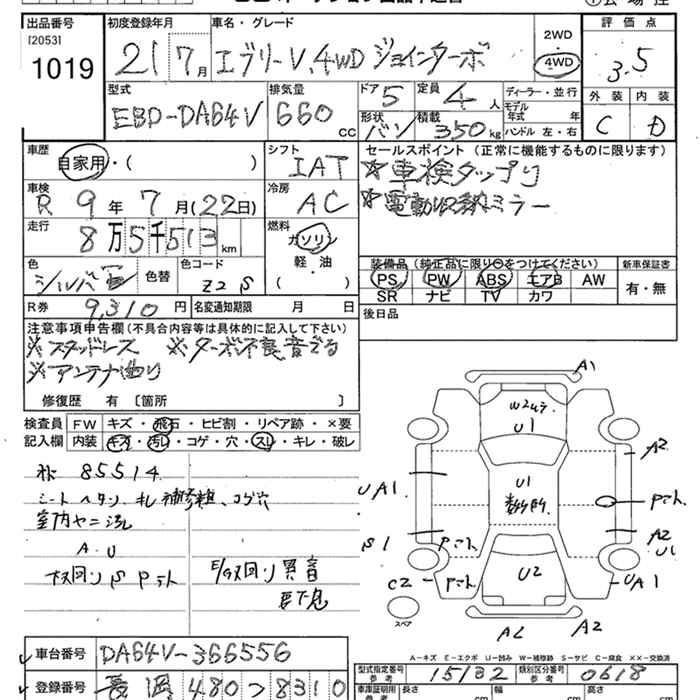 出品番号 初度登録年月 車名・グレード 評価点
[2053]
1019
21年 7月 エブリーV.4WD ジョインターボ 2WD 4WD 3.5
型式 排気量 ドア 定員 ディーラー・並行 外装 内装
EBD-DA64V 660cc 5 4人 モデル年式 年 C D
形状 積載 ハンドル 左・右
バン 350kg
車歴 シフト セールスポイント (正常に機能するものに限ります)
自家用・( ) IAT ☆車検タップリ
車検 冷房
R 9年 7月(22日) AC ☆電動収納ミラー
走行 燃料
8万5千513km ガソリン
軽・油
( )
色 色替 色コード 装備品(純正品に限り○をつけてください) 新車保証書
シルバー Z2S PS PW ABS エアB AW 有・無
SR ナビ TV カワ
R券 9,310円 名変通知期限 月 日 後日品
注意事項申告欄(不具合内容等は具体的に記入して下さい)
※スタッドレス ※ターボ不良音でる
※アンテナ曲り
修復歴 有 〔箇所 〕
検査員 FW キズ・飛石・ヒビ割・リペア跡・×要
記入欄 内装 キズ・汚レ・コゲ・穴・スレ・キレ・破レ
85514
シートヘタリ、キレ補修粗、コゲ穴
室内ヤニ汚レ
A.U
異音
A1
U1
A2
U1
UA1
A2
S1
U1
C2
U2
UA1
A2
A2
スペア
A-キズ E-エクボ U-凹み W-補修跡 S-サビ C-腐食 ××-交換済
車台番号 DA64V-366556
型式指定番号 15132 類別区分番号 0618
登録番号 長岡 480 つ 8310
長さ 幅 高さ